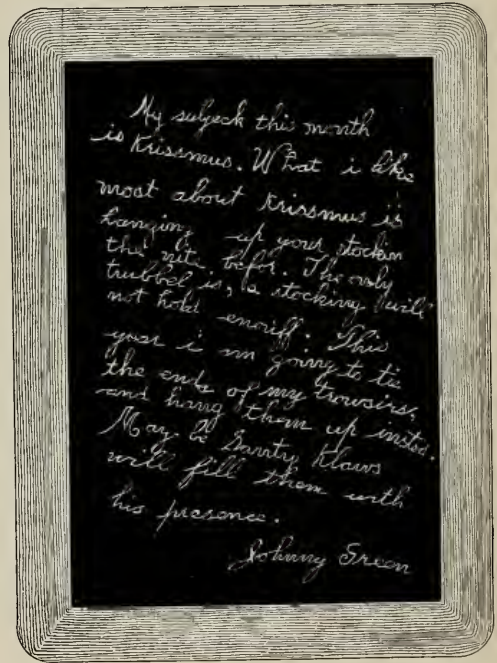 My subjeck this month
is Krissmus. What i like
most about Krissmus is
hanging up your stockin
the nite befor. The only
trubbel is, a stocking will
not hold enouff. This
year i m going to tie
the ends of my trowsirs,
and hang them up insted.
May be Santy Klaws
will fill them with
his presence.
Johnny Green